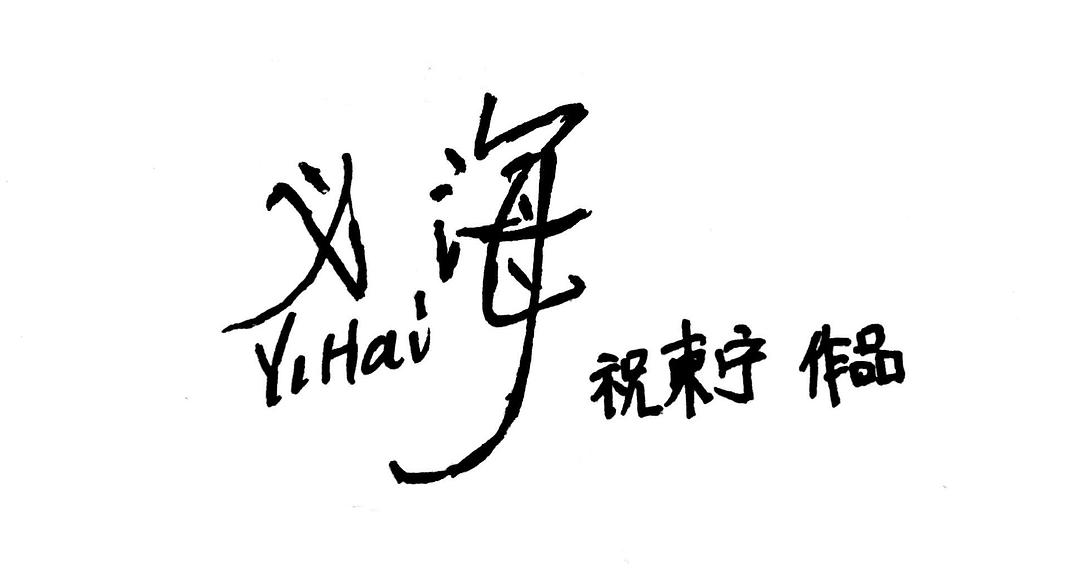 义海
YiHai
祝東宁 作品